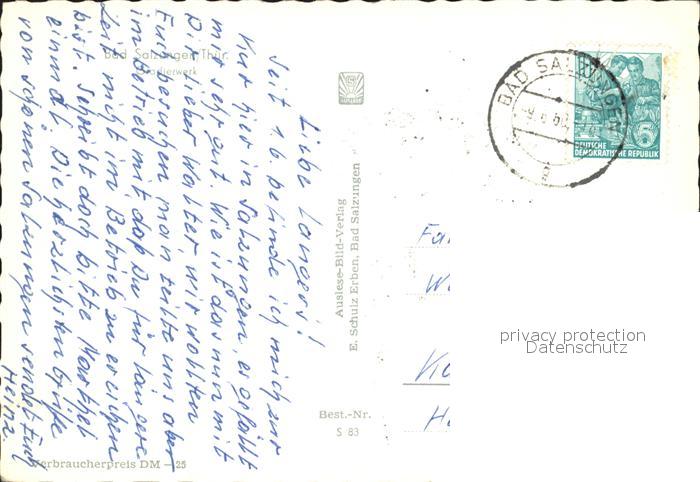 Liebe Langers!
Seit 1.6. befinde ich mich zur
Kur hier in Salzungen, es gefällt
mir sehr gut. Wie ist das nun mit
Dir lieber Walter, wir wollten
Euch besuchen man teilte uns aber
im Betrieb mit, daß Du für längere
Zeit nicht im Betrieb zu erreichen
bist. Schreibt doch bitte Marthel
einmal. Die herzlichsten Grüße
vom schönen Salzungen sendet Euch
Heinz.
Bad Salzungen/Thür.
Gradierwerk
AUSLESE
Auslese-Bild-Verlag
E. Schulz Erben, Bad Salzungen
Best.-Nr.
S 83
Verbraucherpreis DM –.25
BAD SALZUNGEN
DEUTSCHE
DEMOKRATISCHE REPUBLIK
5
privacy protection
Datenschutz